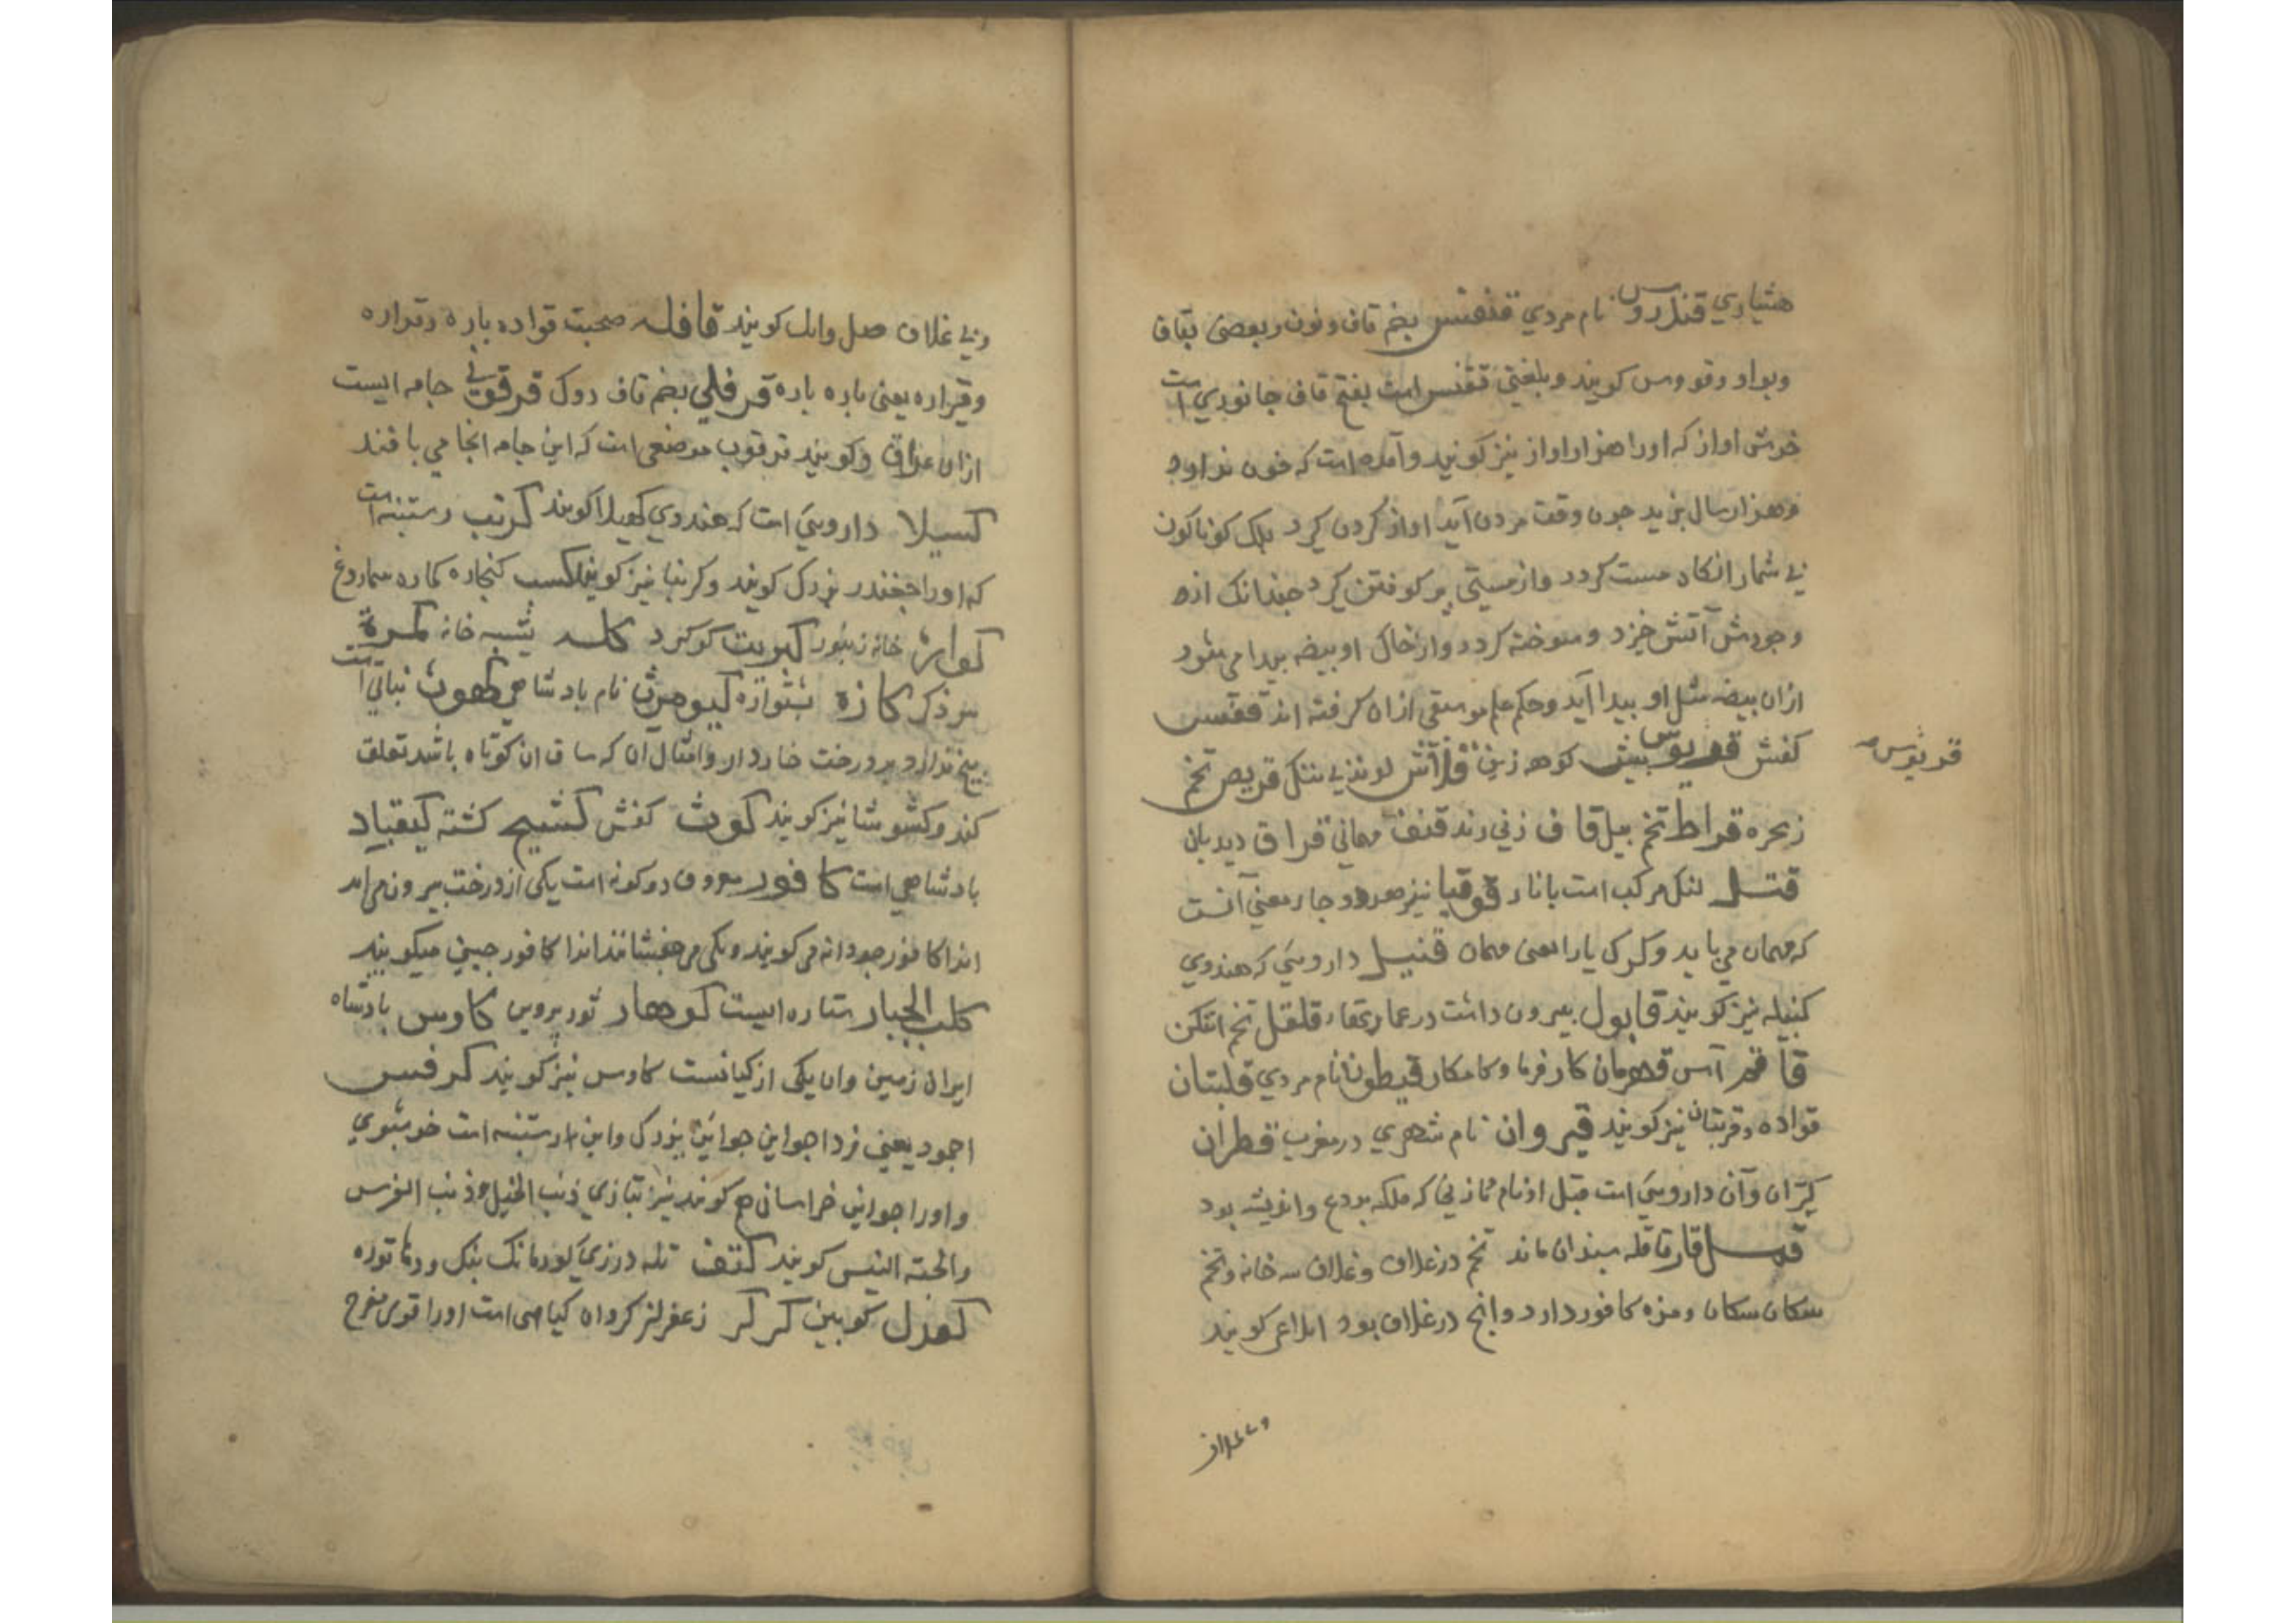 هشیاوي قندروس نام مردي قنقنس بضم قاف و نون و بعضی بقاف
وبواو وقووس کویند وبلغتی ققنس است بفتح قاف جانوري است
خوش اواز که اورا هزار اواز نیز کویند و آمده است که
وهزار سال بزید جون وقت مردن آید اواز کردن کیرد کوناکون
بی شمار انکاه مست کردد واز مستی پر کوفتن کیرد جندانک ازه
وجودش آتش خیزد وسوخته کردد واز خاك او بیضه پیدا می شود
ازان بیضه مثل او پیدا آید وحکم علم موسقی ازان کرفته اند ققنس
قربوس
کفش قربوس پیش کوهه زین قلاش لوند بی ننك قریص تخم
زنجره قراط تخم بیل قاف زنی رند قنف مهمانی قراق دیدبان
لنکل مرکب است بانار قوقیا نیز هر دو جا معنی آنست
که مهمان می باید وکرك یارا یعنی مهمان قنبیل داروییَ که هندوي
کنبیله نیز کویند قابول بیرون داشت در عمارتها قلقل تخم
قاقم آس قهرمان کار فرما وکامکار قیطون نام مردي قلبتان
قواده وقربتان نیز کویند قیروان نام شهري در مغرب قطران
کتران وآن داروییَ است قبل از نام زنی که ملکه بردع بود
قار قاقله سپندان ماند تخم در غلاف وغلاف سه خانه وتخم
سکان سکان ومزه کافور دارد وانج در غلاف بود کویند
وبی غلاف
وبی غلاف کویند قافله صحبت قواده باره وقواره
وقراره یعنی باره باره قرفلي بضم قاف دوك قرقوبی جامه ایست
ازان عراق وکویند قرقوب موضعی است که این جامه انجا می بافند
کسیلا داروییَ است که هندوي کهیلا کویند کرنب رستنیه است
که اورا جغندر بزرك کویند وکرنبا نیز کویند کسب کنجاره کماره سماروغ
کواره خانه زنبور کبریت کوکرد کله پشه خانه کمرة
سر ذکر کازه نشوازه کیومرث نام بادشاهی کهوث نباتی است
بیخ ندارد وبر درخت خاردار وامثال آن که ساق ان کوتاه باشد تعلق
کند وکشوشا نیز کویند کوث کفش کشیح کشته کیقباد
بادشاهی است کافور معروف دو کونه است یکی از درخت بیرون می اید
انرا کافور جودانه می کویند ویکی می جفشانند انرا کافور جینی میکویند
کلب الجبار ستاره ایست کوهار ثور پروین کاوس بادشاه
ایران زمین وان یکی از کیانست کاوس نیز کویند کرفس
اجمود یعنی خرد اجواین جوانین بزرك واین رستنیه است خوشبوي
واورا جوانی خراسانی هم کویند نیز بتازي ذنب الخیل وذنب الفرس
والحته التیس کویند کتف تله درزي کودمانك بنك ودتاتوره
کودل کوبین کرکر زعفرلز کرواه کیاهی است اورا قوی مفرح